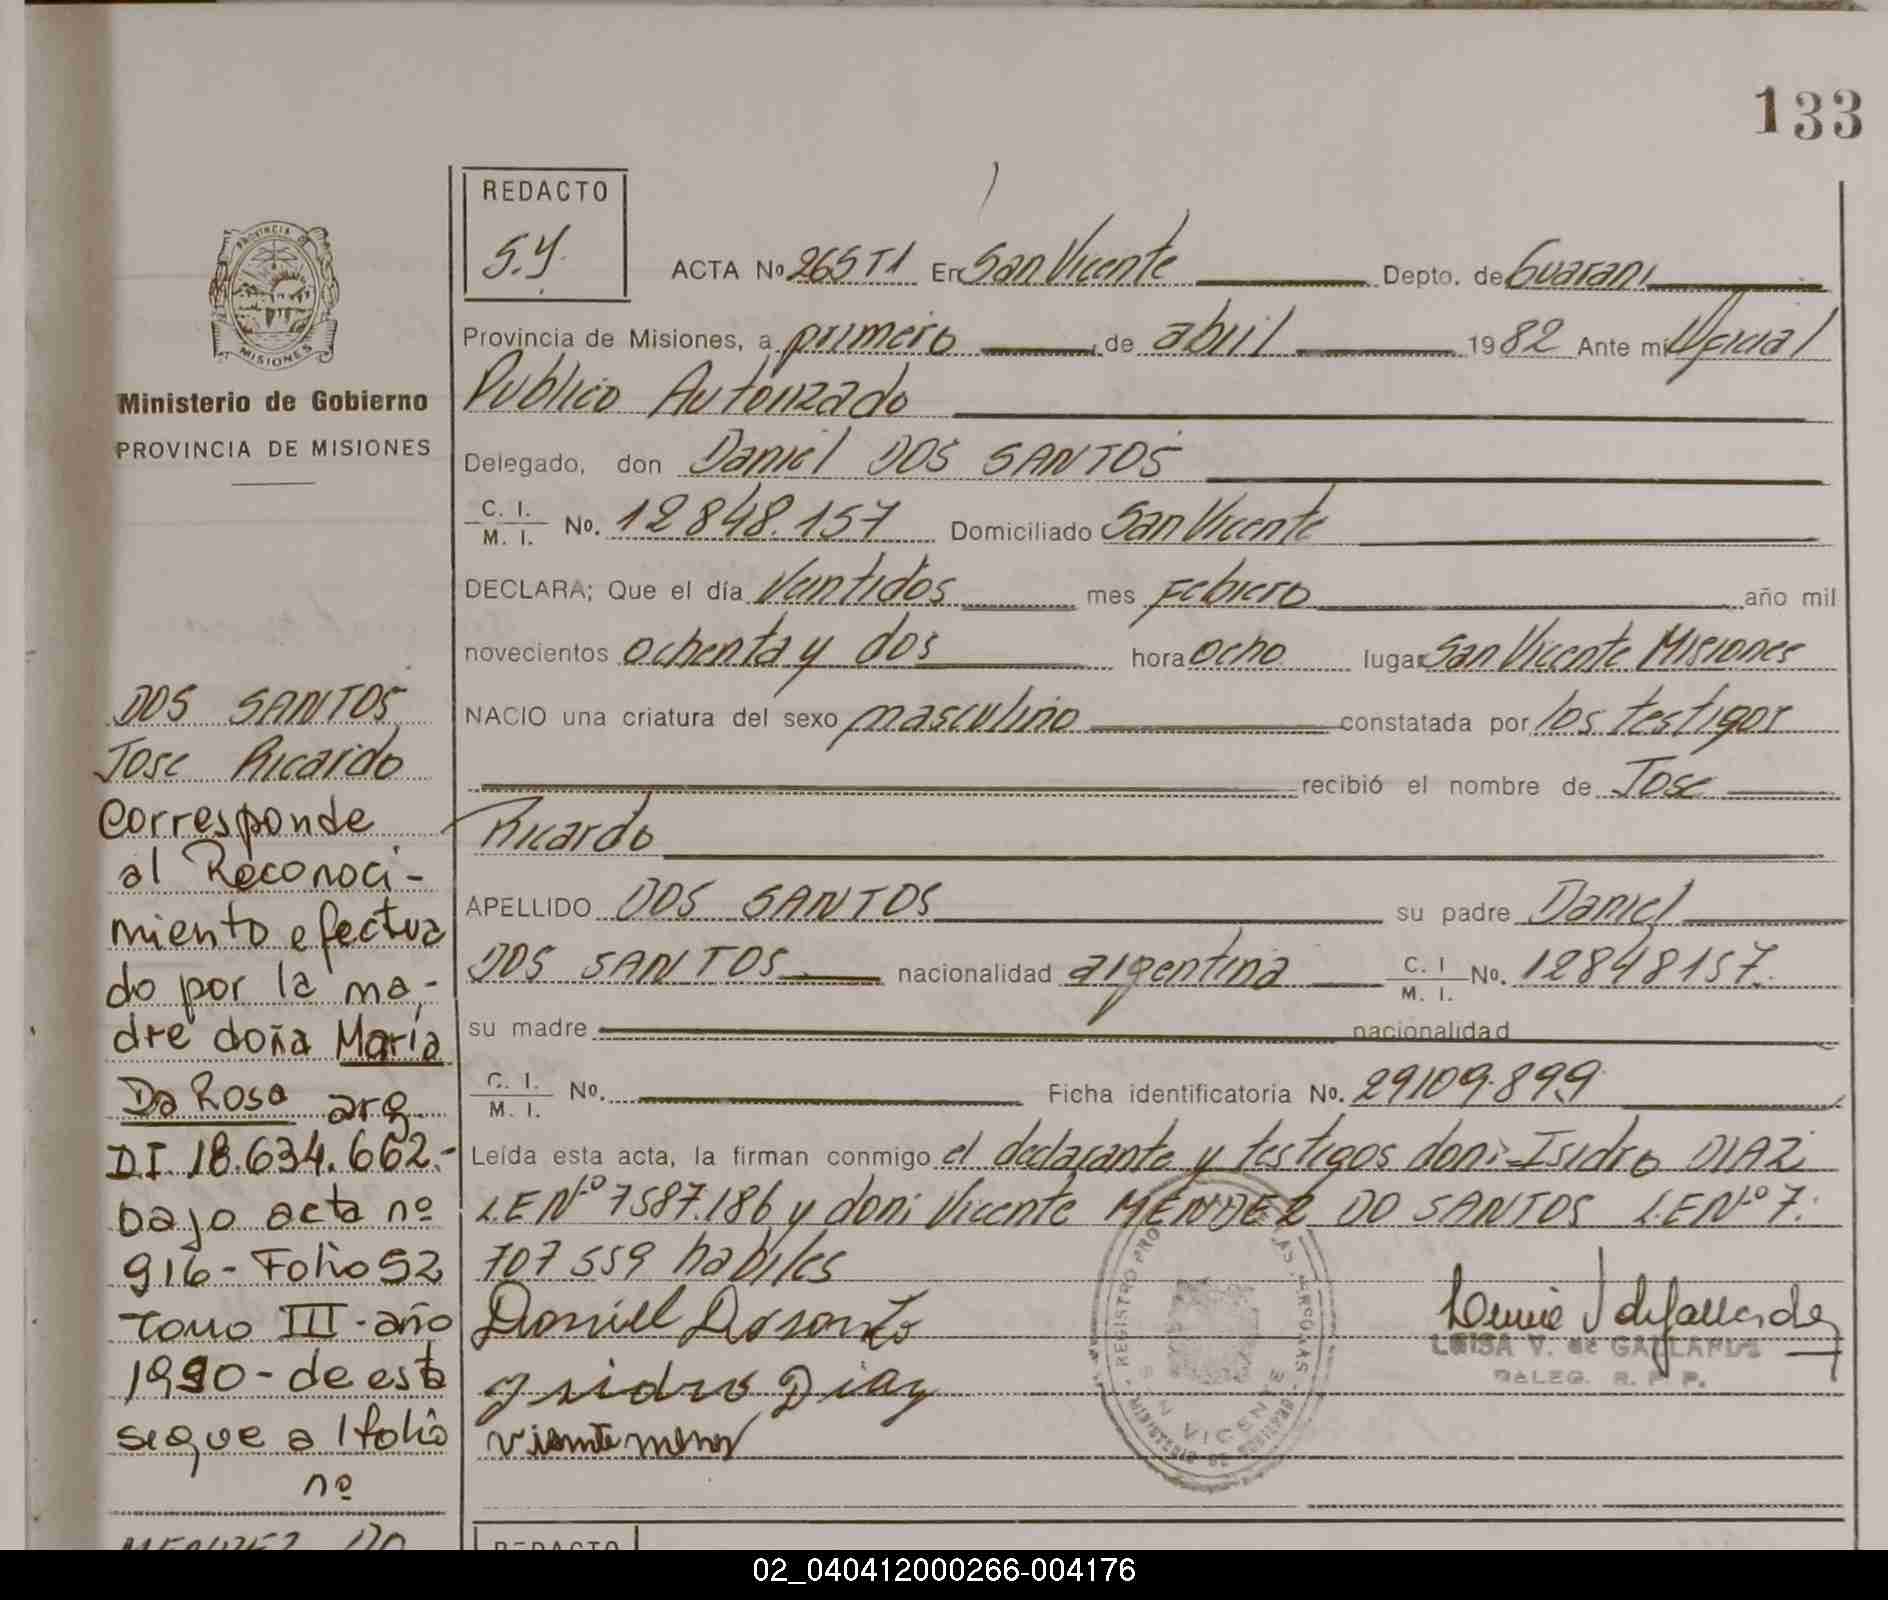 133
REDACTO
S.Y.
ACTA No 265 T1 En San Vicente Depto. de Guarani
Provincia de Misiones, a primero de abril 1982 Ante mi Oficial
Publico Autorizado
Delegado, don Daniel DOS SANTOS
C. I. / M. I. No. 12848.157 Domiciliado San Vicente
DECLARA; Que el día Veintidos mes Febrero año mil
novecientos ochenta y dos hora ocho lugar San Vicente Misiones
NACIO una criatura del sexo masculino constatada por los testigos
recibió el nombre de Jose
Ricardo
APELLIDO DOS SANTOS su padre Daniel
DOS SANTOS nacionalidad argentina C. I / M. I. No. 12848157.
su madre nacionalidad
C. I. / M. I. No. Ficha identificatoria No. 29109.899
Leída esta acta, la firman conmigo el declarante y testigos don: Isidro DIAZ
L.E Nº 7587.186 y don: Vicente MENDEZ DO SANTOS L.E Nº 7.
707 559 habiles
Isidro Diaz
LUISA V. de GALLARDO
DALEG. R. P. P.
REGISTRO PRO LAS PERSONAS
SAN VICENTE
MINISTERIO DE GOBIERNO
PROVINCIA DE
MISIONES
Ministerio de Gobierno
PROVINCIA DE MISIONES
DOS SANTOS
Jose Ricardo
Corresponde
al Reconoci-
miento efectua
do por la ma-
dre doña María
Da Rosa arg.
DI 18.634.662.-
bajo acta nº
916- Folio 52
Tomo III - año
1990 - de esta
segue a 1 folio
nº
MENDEZ DO
REDACTO
02_040412000266-004176